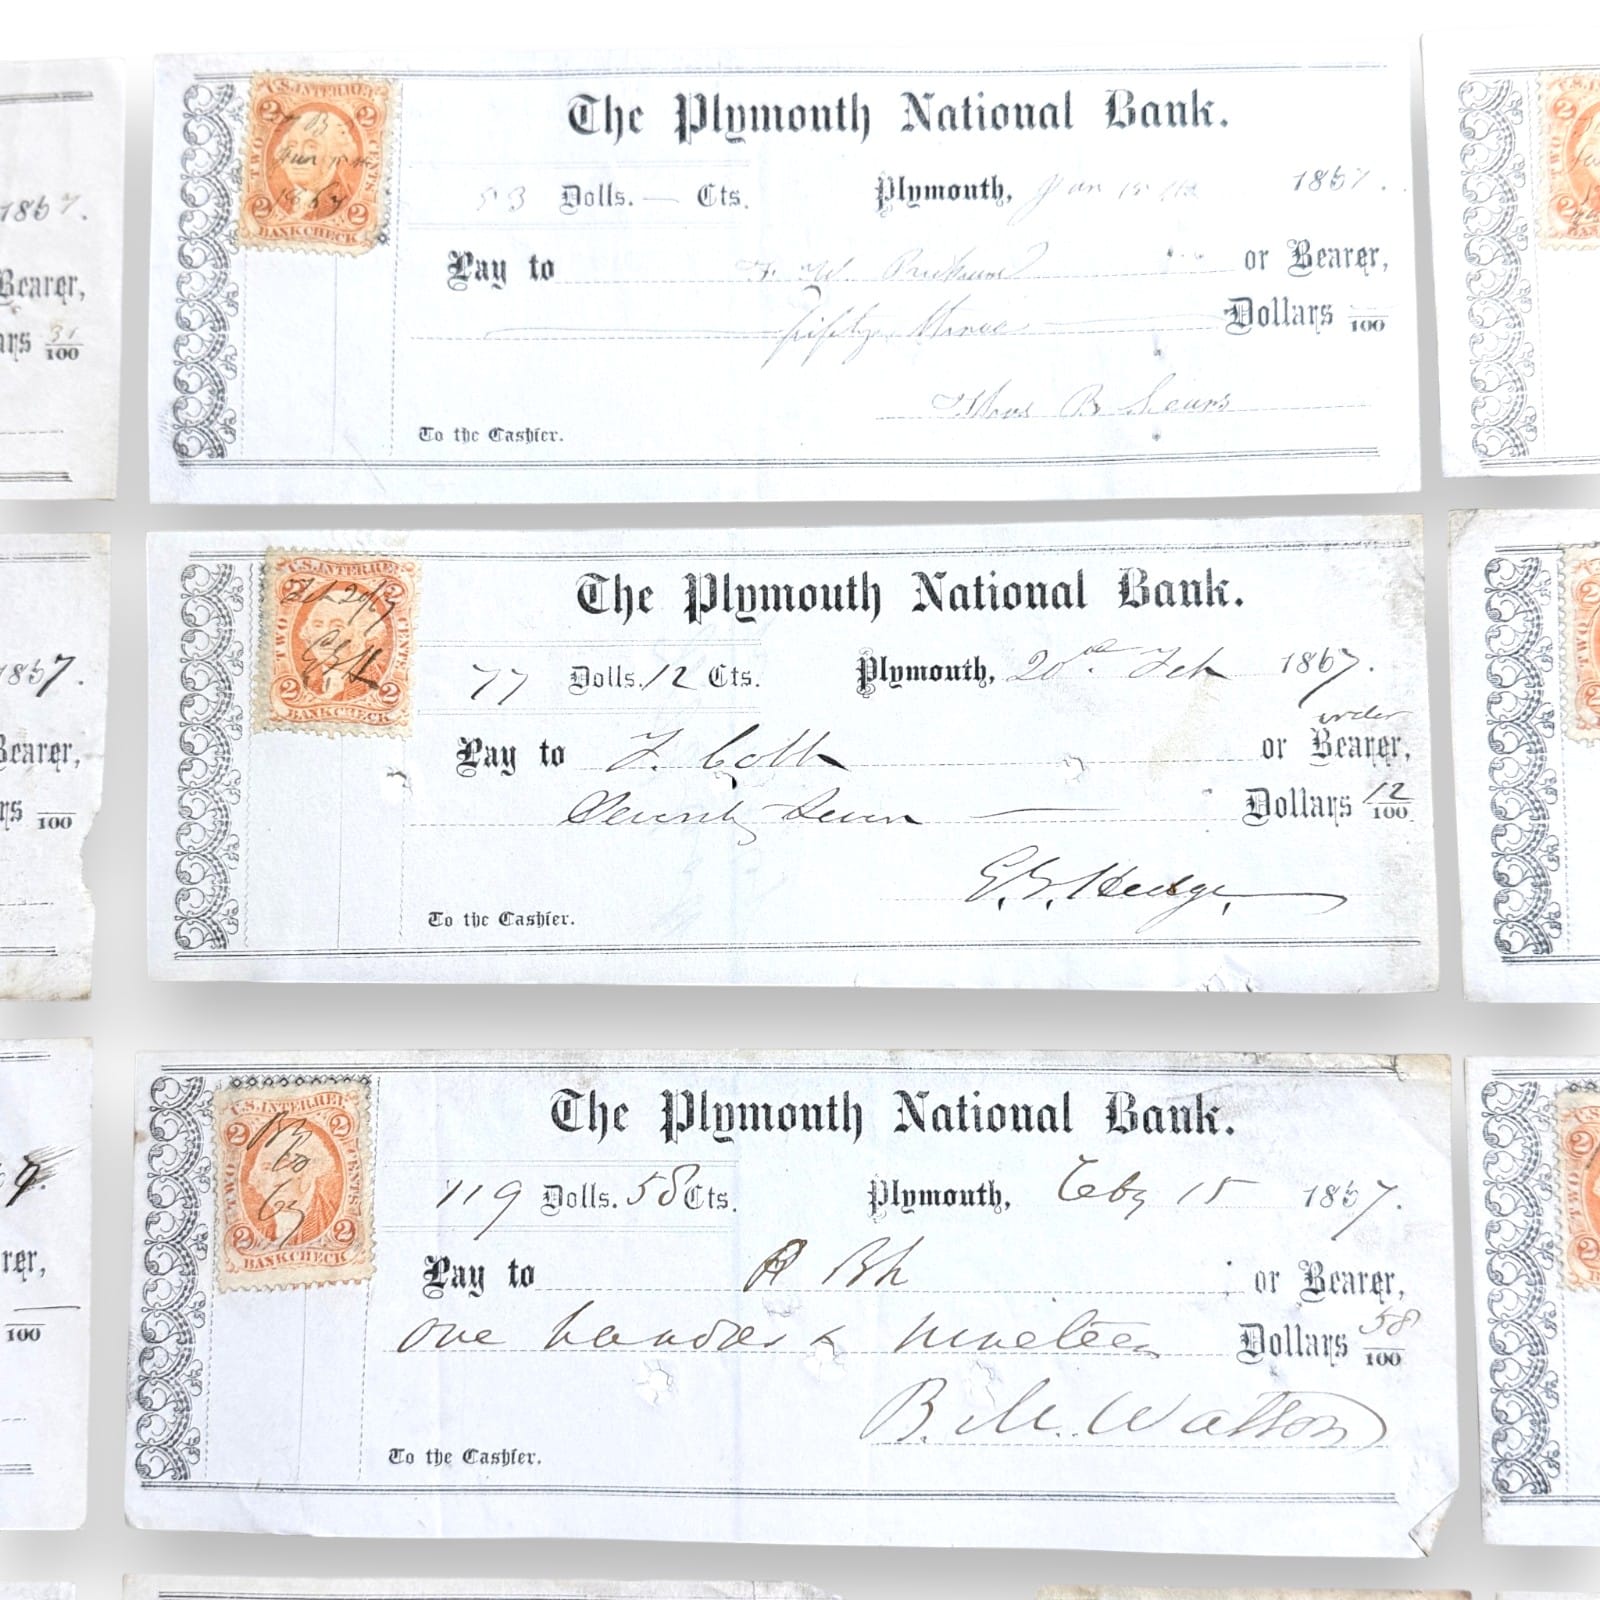 The Plymouth National Bank.
U.S. INTER. REV.
2 2
TWO CENTS
Jan 15th
1867
2 2
BANK CHECK
53 Dolls. — Cts. Plymouth, Jan 15th 1867.
Pay to F. W. or Bearer,
Fifty three Dollars /100
Thos B Sears
To the Cashier.
The Plymouth National Bank.
U.S. INTER. REV.
Feb 20/67
TWO CENTS
2 2
BANK CHECK
77 Dolls. 12 Cts. Plymouth, 20th Feb 1867.
order
Pay to F. Cobb or Bearer,
Seventy Seven Dollars 12/100
To the Cashier.
The Plymouth National Bank.
U.S. INTER. REV.
2 2
TWO CENTS
67
2 2
BANK CHECK
119 Dolls. 58 Cts. Plymouth, Feby 15 1867.
Pay to or Bearer,
one hundred & nineteen Dollars 58/100
B. M. Watson
To the Cashier.
1867.
Bearer,
31/100
1867.
Bearer,
/100
/100